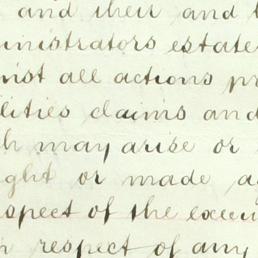 and their and
ministrators estate
inst all actions pr
lities claims and
h may arise or
ght or made ag
spect of the execu
n respect of any